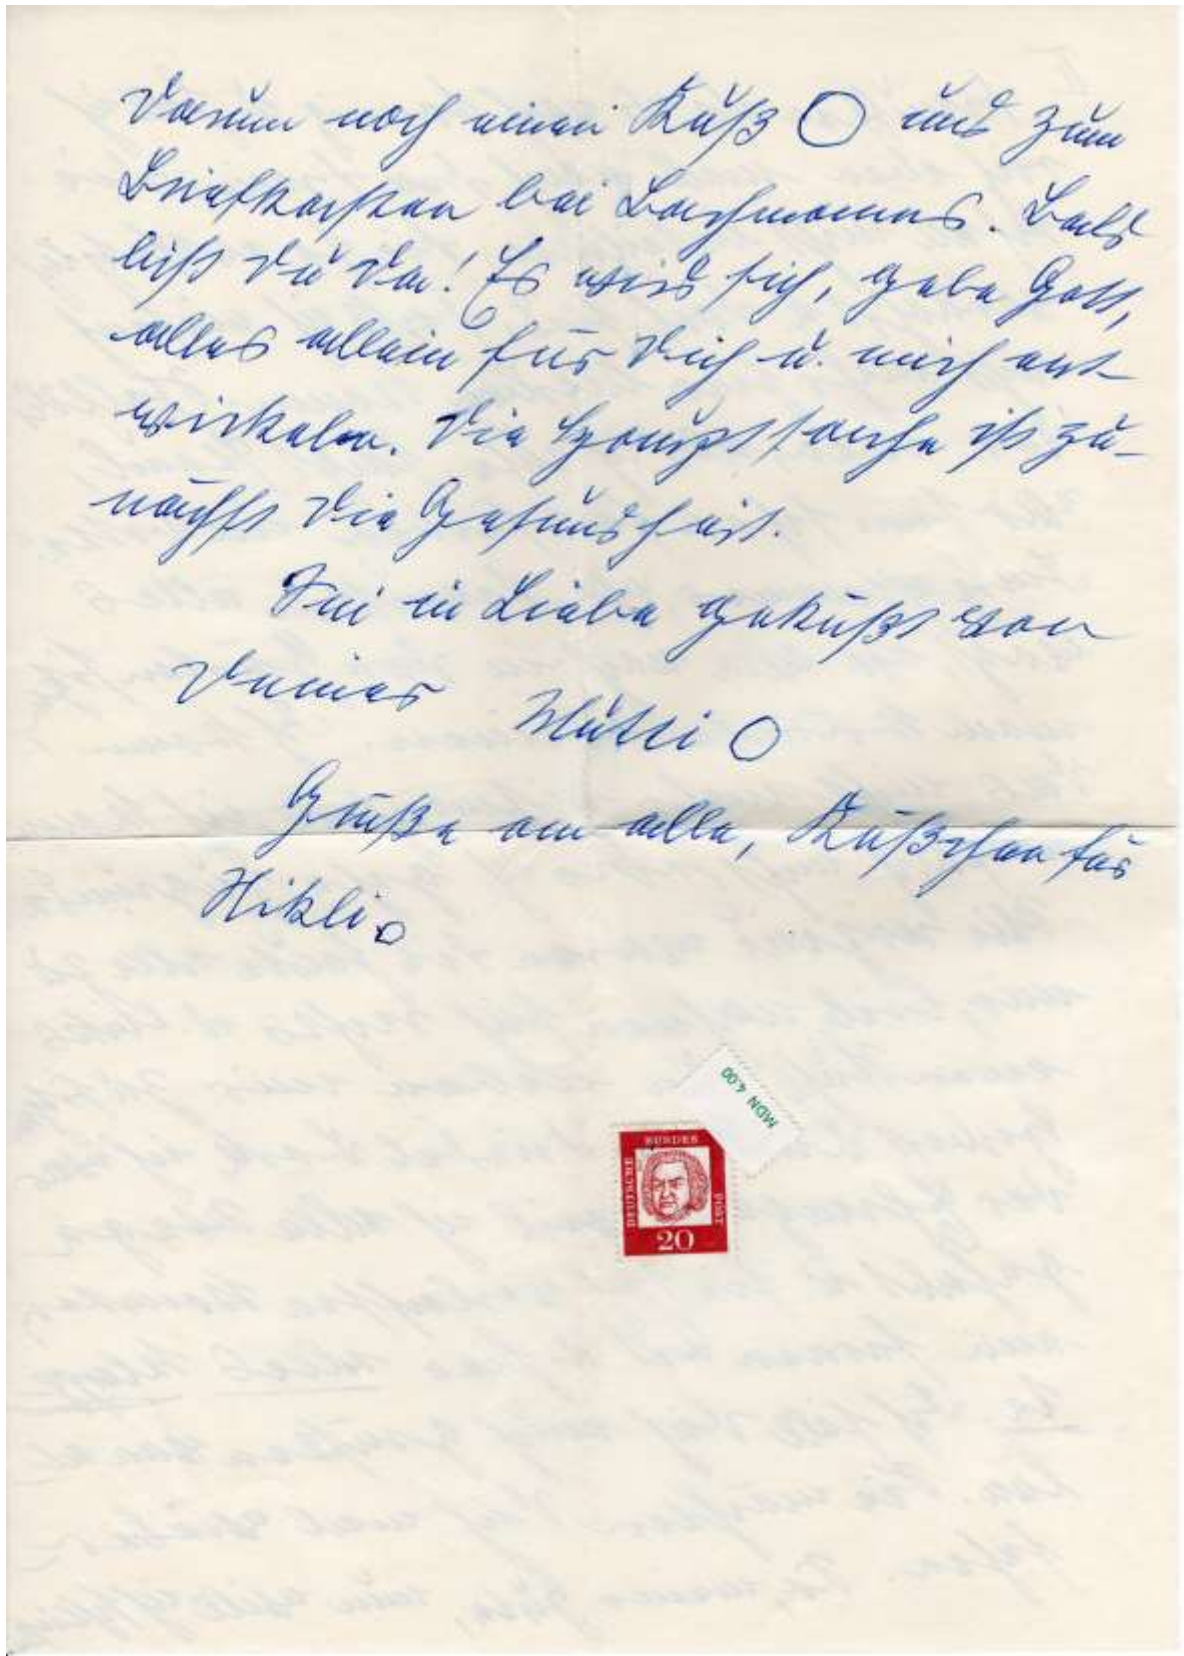 Darum noch einen Kuß O und zum
Briefkasten bei Bachmanns. Bald
bist Du da! Es wird sich, gebe Gott,
alles allein für Dich u. mich ent-
wickeln. Die Hauptsache ist zu-
nächst die Gesundheit.
Sei in Liebe geküßt von
Deiner Mutti O
Grüße an alle, Küßchen für
Hikli o
MDN 4.00
DEUTSCHE BUNDES POST
20